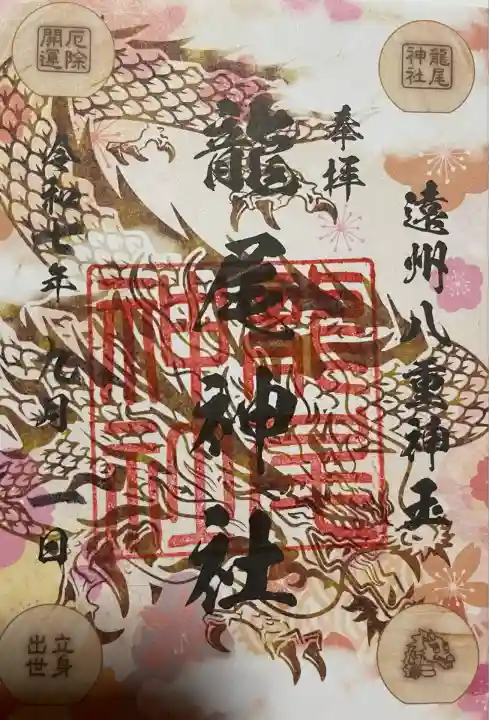 遠州八重神玉
奉拝
龍尾神社
令和七年 九月 一日
龍尾
神社
厄除
開運
立身
出世
龍尾
神社